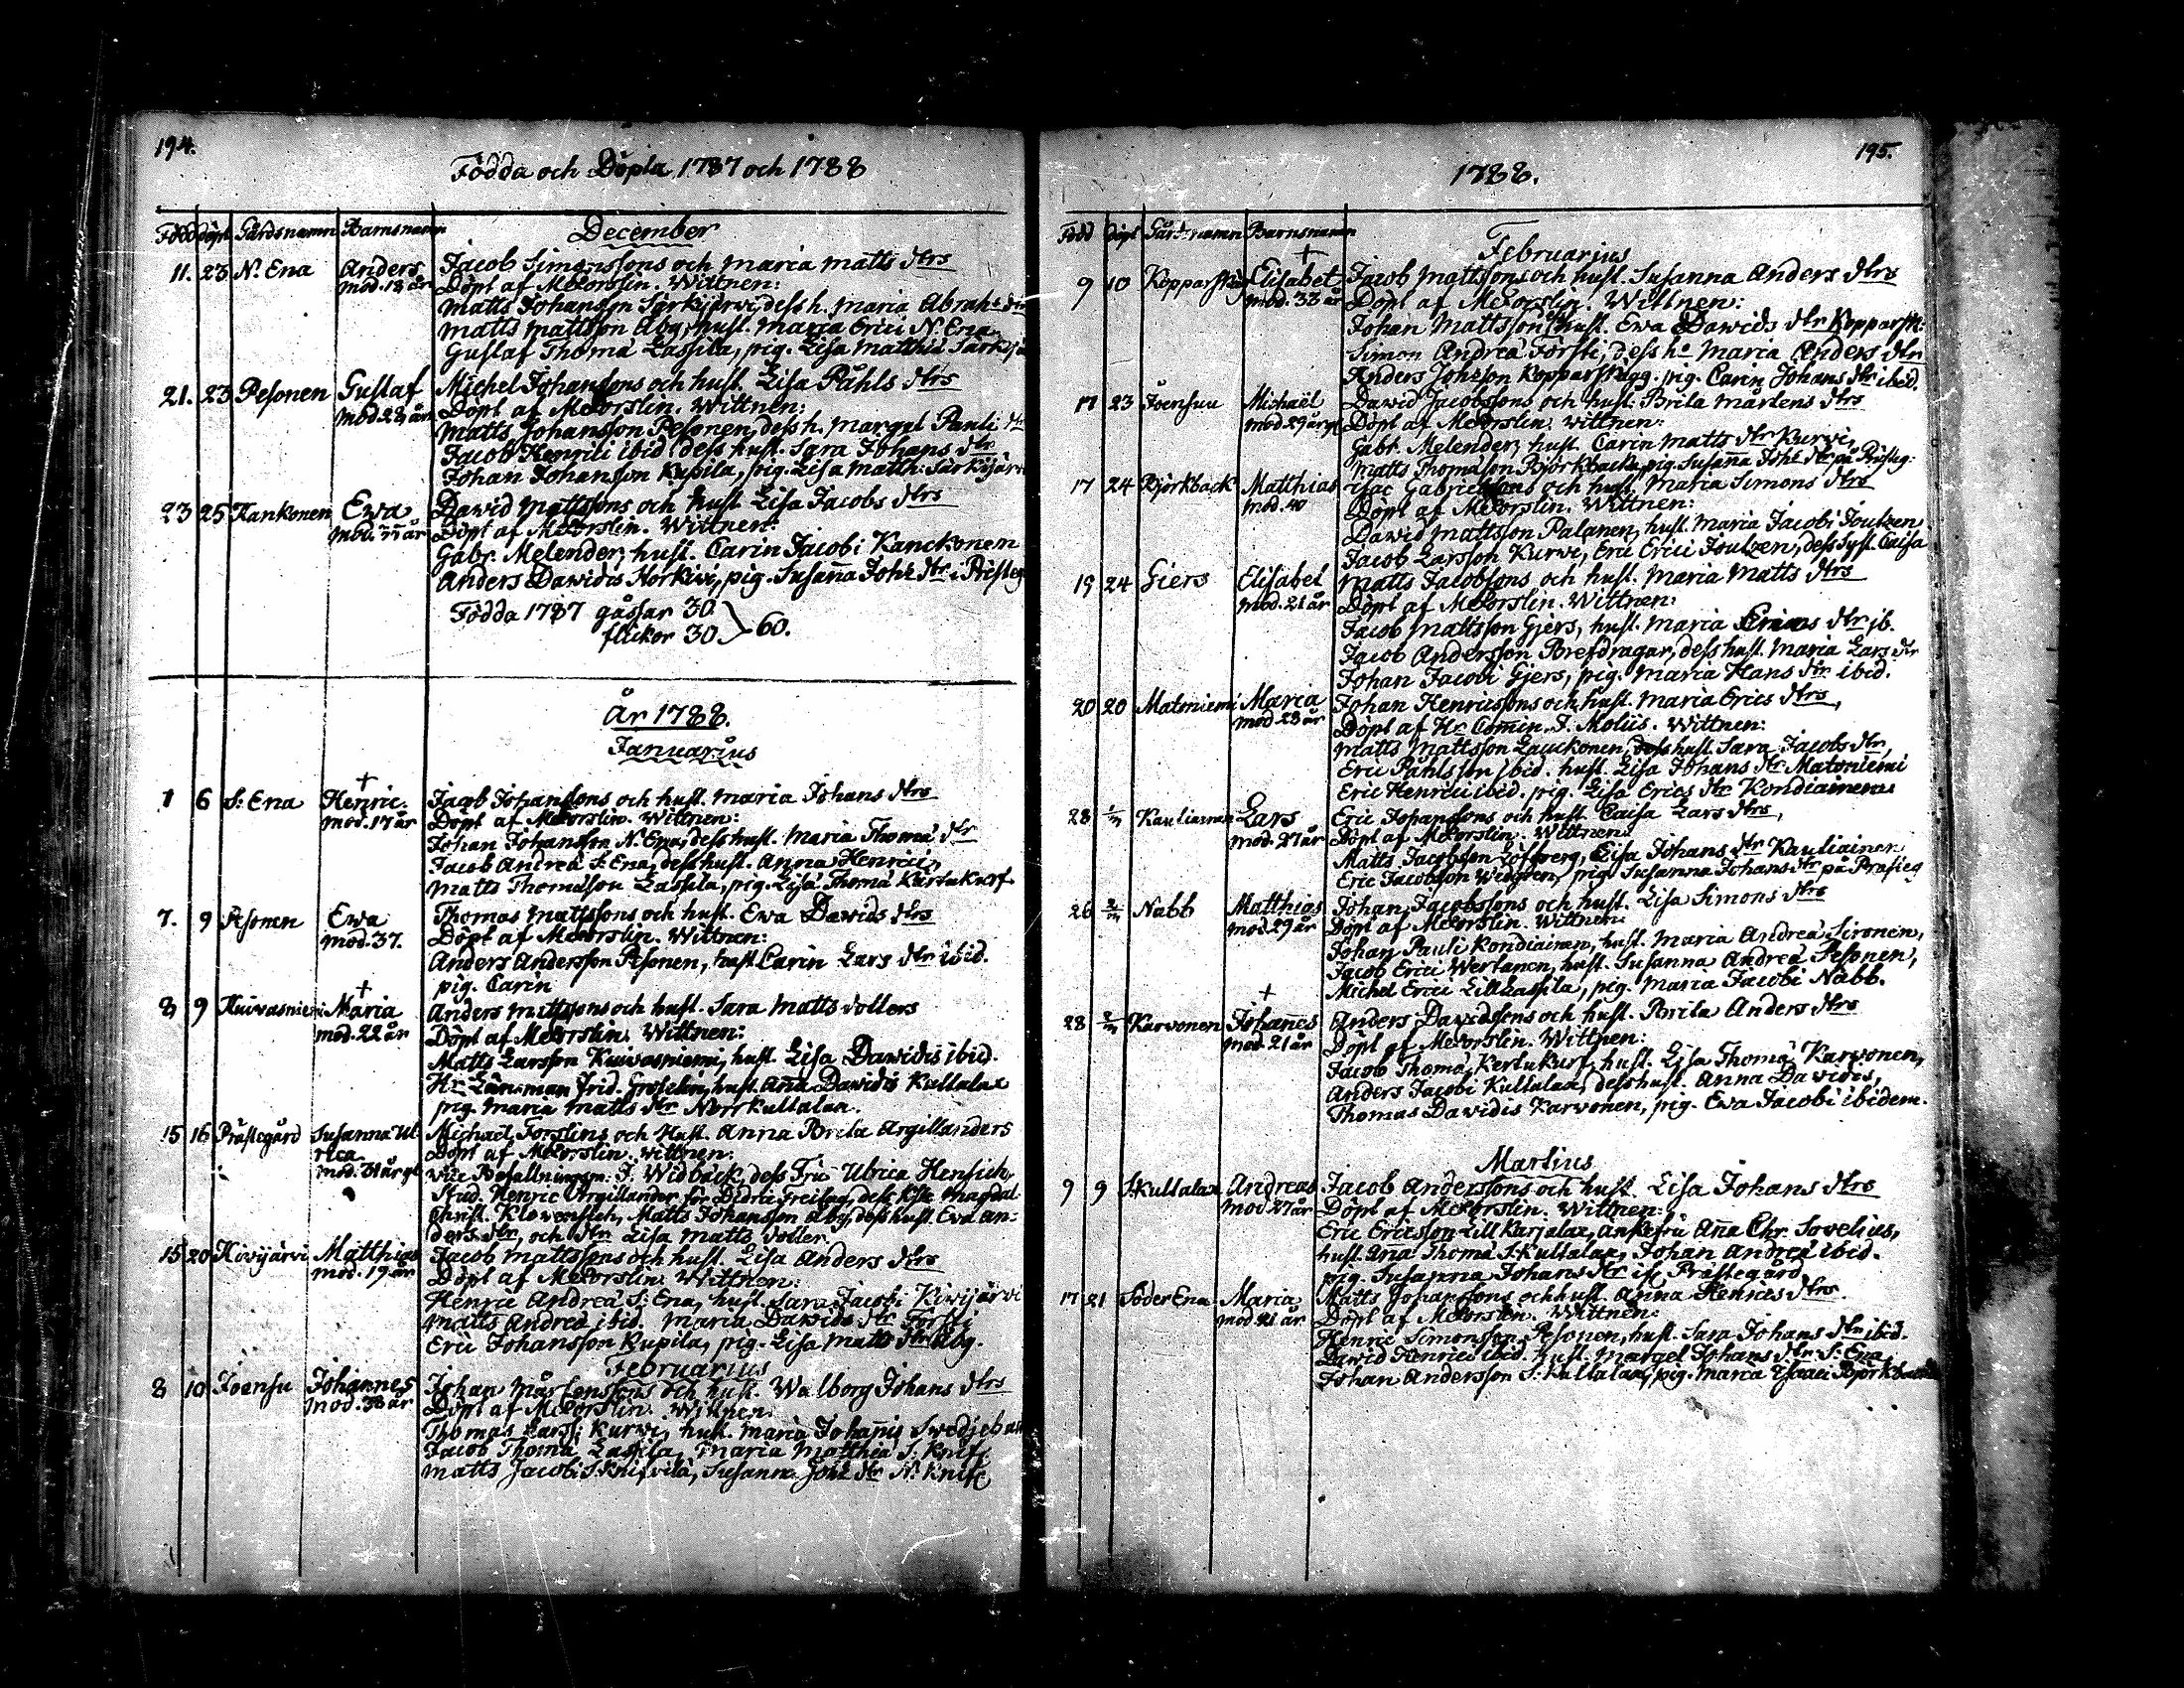 194.
Födda och Döpta 1787 och 1788
Född döpt Gårdsnamn Barnsnamn
December
11. 23 N. Ena Anders Jacob Simonssons och Maria Matts dtrs
mod. 18 år Döpt af M Forslin. Wittnen:
Matts Johansson Särkijärvi, dess h. Maria Abrah:
Matts Mattsson Åby, hust. Maria Erici N. Ena
Gustaf Thomæ Lassila, pig. Lisa Matthiæ
21. 23 Pesonen Gustaf Michel Johanssons och hust. Lisa Påhls dtrs
mod 28 år Döpt af M Forslin. Wittnen:
Matts Johansson Pesonen, dess h. Margat Pauli dtr
Jacob Henrici ibid, dess hust. Sara Johans dtr
Johan Johansson Kupila, pig. Lisa Matth: Särkijärv
23 25 Kankonen Ewa David Mattssons och hust Lisa Jacobs dtrs
Döpt af M Forslin. Wittnen:
Gabr. Melender, hust. Carin Jacobi Kanckonen
Anders Dawidis Horkivi, pig. Susaña Joh: dtr i Pristeg
Födda 1787 gåssar 30
flickor 30 } 60.
År 1788.
Januarius
†
1 6 S. Ena Henric. Jacob Johanssons och hust. Maria Johans dtrs
mod. 17 år Döpt af M Forslin. Wittnen:
Johan Johansson N. Ena, dess hust. Maria Thomæ dtr
Jacob Andreæ S. Ena, dess hust. Anna Henrici,
Matts Thomasson Lassila, pig. Lisa Thomæ Kärtukurf
7. 9 Pesonen Ewa Thomas Mattssons och hust. Ewa Dawids dtrs
mod. 37. Döpt af M Forslin. Wittnen:
Anders Andersson Pesonen, hust Carin Lars dtr ibid.
pig. Carin
†
8 9 Kuivasniemi Maria Anders Mattssons och hust. Sara Matts dotters
mod. 22 år Döpt af M Forslin. Wittnen:
Matts Larsson Kuivasniemi, hust. Lisa Dawidis ibid.
Hr Länsman Frid. hust. Aña Dawidis Kultalax
pig. Maria Matts dtr Norrkultalax.
15 16 Prästegård Susanna Ul- Michael Forslins och Hust. Anna Brita Argillanders
rica Döpt af M Forslin. Wittnen:
vice Befallningsm: J. Widbäck, dess Fru Ulrica Hensich,
Stud. Henric Argillander för Didric Freitag, dess Magdal.
Christ. Klovensich, Matts Johansson Åby, dess hust. Eva An-
ders dtr, och dtr Lisa Matts dotter.
15 20 Kivijärvi Matthias Jacob Mattssons och hust. Lisa Anders dtrs
mod. 19 år Döpt af M Forslin. Wittnen:
Henric Andreæ S. Ena, hust. Sara Jacobi Kivijärvi
Matts Andreæ ibid. Maria Dawids dtr Försti
Eric Johansson Kupila, pig. Lisa Matts dtr Åby.
Februarius
8 10 Joensu Johannes Johan Mårtenssons och hust. Walborg Johans dtrs
mod. 38 år Döpt af M Forslin. Wittnen:
Thomas Larss: Kurvi, hust. Maria Johañis
Jacob Thomæ Lassila, Maria Matthiæ S. Knif,
Matts Jacobi S. Knifvilä, Susanna Joh: dtr N. Knif
195.
1788.
Född döpt Gårdsnamn Barnsnamn
Februarius
†
9 10 Kopparstrigg Elisabet Jacob Mattssons och hust. Susanna Anders dtrs
mod. 33 år Döpt af M Forslin. Wittnen:
Johan Mattsson hust. Ewa Dawids dtr Kopparst:
Simon Andreæ Försti, dess h: Maria Anders dtr
Anders Johsson pig. Carin Johans dtr ibid.
17 23 Joensuu Michaël Dawid Jacobssons och hust. Brita Mårtens dtrs
mod 29 år Döpt af M Forslin. Wittnen:
Gabr. Melender, hust. Carin Matts dtr Kurvi,
Matts Thomasson Björkbacka, pig. Susaña Joh: dtr på Pristeg:
17 24 Björkback Matthias Isac Gabrielssons och hust. Maria Simons dtrs
mod. 40 Döpt af M Forslin. Wittnen:
Dawid Mattsson Palanen, hust. Maria Jacobi Joutzen
Jacob Larsson Kurvi, Eric Erici Joutzen, dess Syst. Caisa
19 24 Giers Elisabet Matts Jacobssons och hust. Maria Matts dtrs
mod. 21 år Döpt af M Forslin. Wittnen:
Jacob Mattsson Gjers, hust. Maria dtr ib.
Jacob Andersson Brefdragar, dess hust. Maria Lars dtr
Johan Jacobi Gjers, pig. Maria Hans dtr ibid.
20 20 Matoniemi Maria Johan Henricssons och hust. Maria Erics dtrs,
mod 28 år Döpt af Hr Comin. J. Moliis. Wittnen:
Matts Mattsson Lauckonen, dess hust. Sara Jacobs dtr,
Eric Påhlsson ibid. hust. Lisa Johans dtr Matoniemi
Eric Henrici ibid. pig. Lisa Erics dtr Kondiainens
28 Kauliainen Lars Eric Johanssons och hust. Caisa Lars dtrs,
mod. 27 år Döpt af M Forslin. Wittnen:
Matts Jacobsson Löfberg, Lisa Johans dtr Kauliainen
Eric Jacobsson Widgren, pig. Susanna Johans dtr på Prästeg
26 Nabb Matthias Johan Jacobssons och hust. Lisa Simons dtrs
mod. 29 år Döpt af M Forslin. Wittnen:
Johan Pauli Kondiainen, hust. Maria Andreæ Sironen,
Jacob Erici Wertanen, hust. Susanna Andreæ Pesonen,
Michel Erici Lill Lassila, pig. Maria Jacobi Nabb.
†
28 Karvonen Johañes Anders Davidssons och hust. Brita Anders dtrs
mod. 21 år Döpt af M Forslin. Wittnen:
Jacob Thomæ Kertukurf, hust. Lisa Thomæ Karvonen,
Anders Jacobi Kultalax, dess hust. Anna Davidis,
Thomas Davidis Karvonen, pig. Ewa Jacobi ibidem.
Martius
9 9 S. Kultalax Andreas Jacob Anderssons och hust. Lisa Johans dtrs
mod 27 år Döpt af M Forslin. Wittnen:
Eric Ericsson Lill Karjalax, Ankefru Aña Chr. Sovelius,
hust. Aña Thomæ S. Kultalax, Johan Andreæ ibid.
pig. Susanna Johans dtr Prästegård
17 21 Söder Ena Maria Matts Johanssons och hust. Anna Henrics dtrs.
mod 21 år Döpt af M Forslin. Wittnen:
Henric Simonsson Pesonen, hust. Sara Johans dtr ibid.
Dawid Henrici ibid. hust. Margel Johans dtr S. Ena,
Johan Andersson S. Kultalax, pig. Maria Esaiæ Björkback